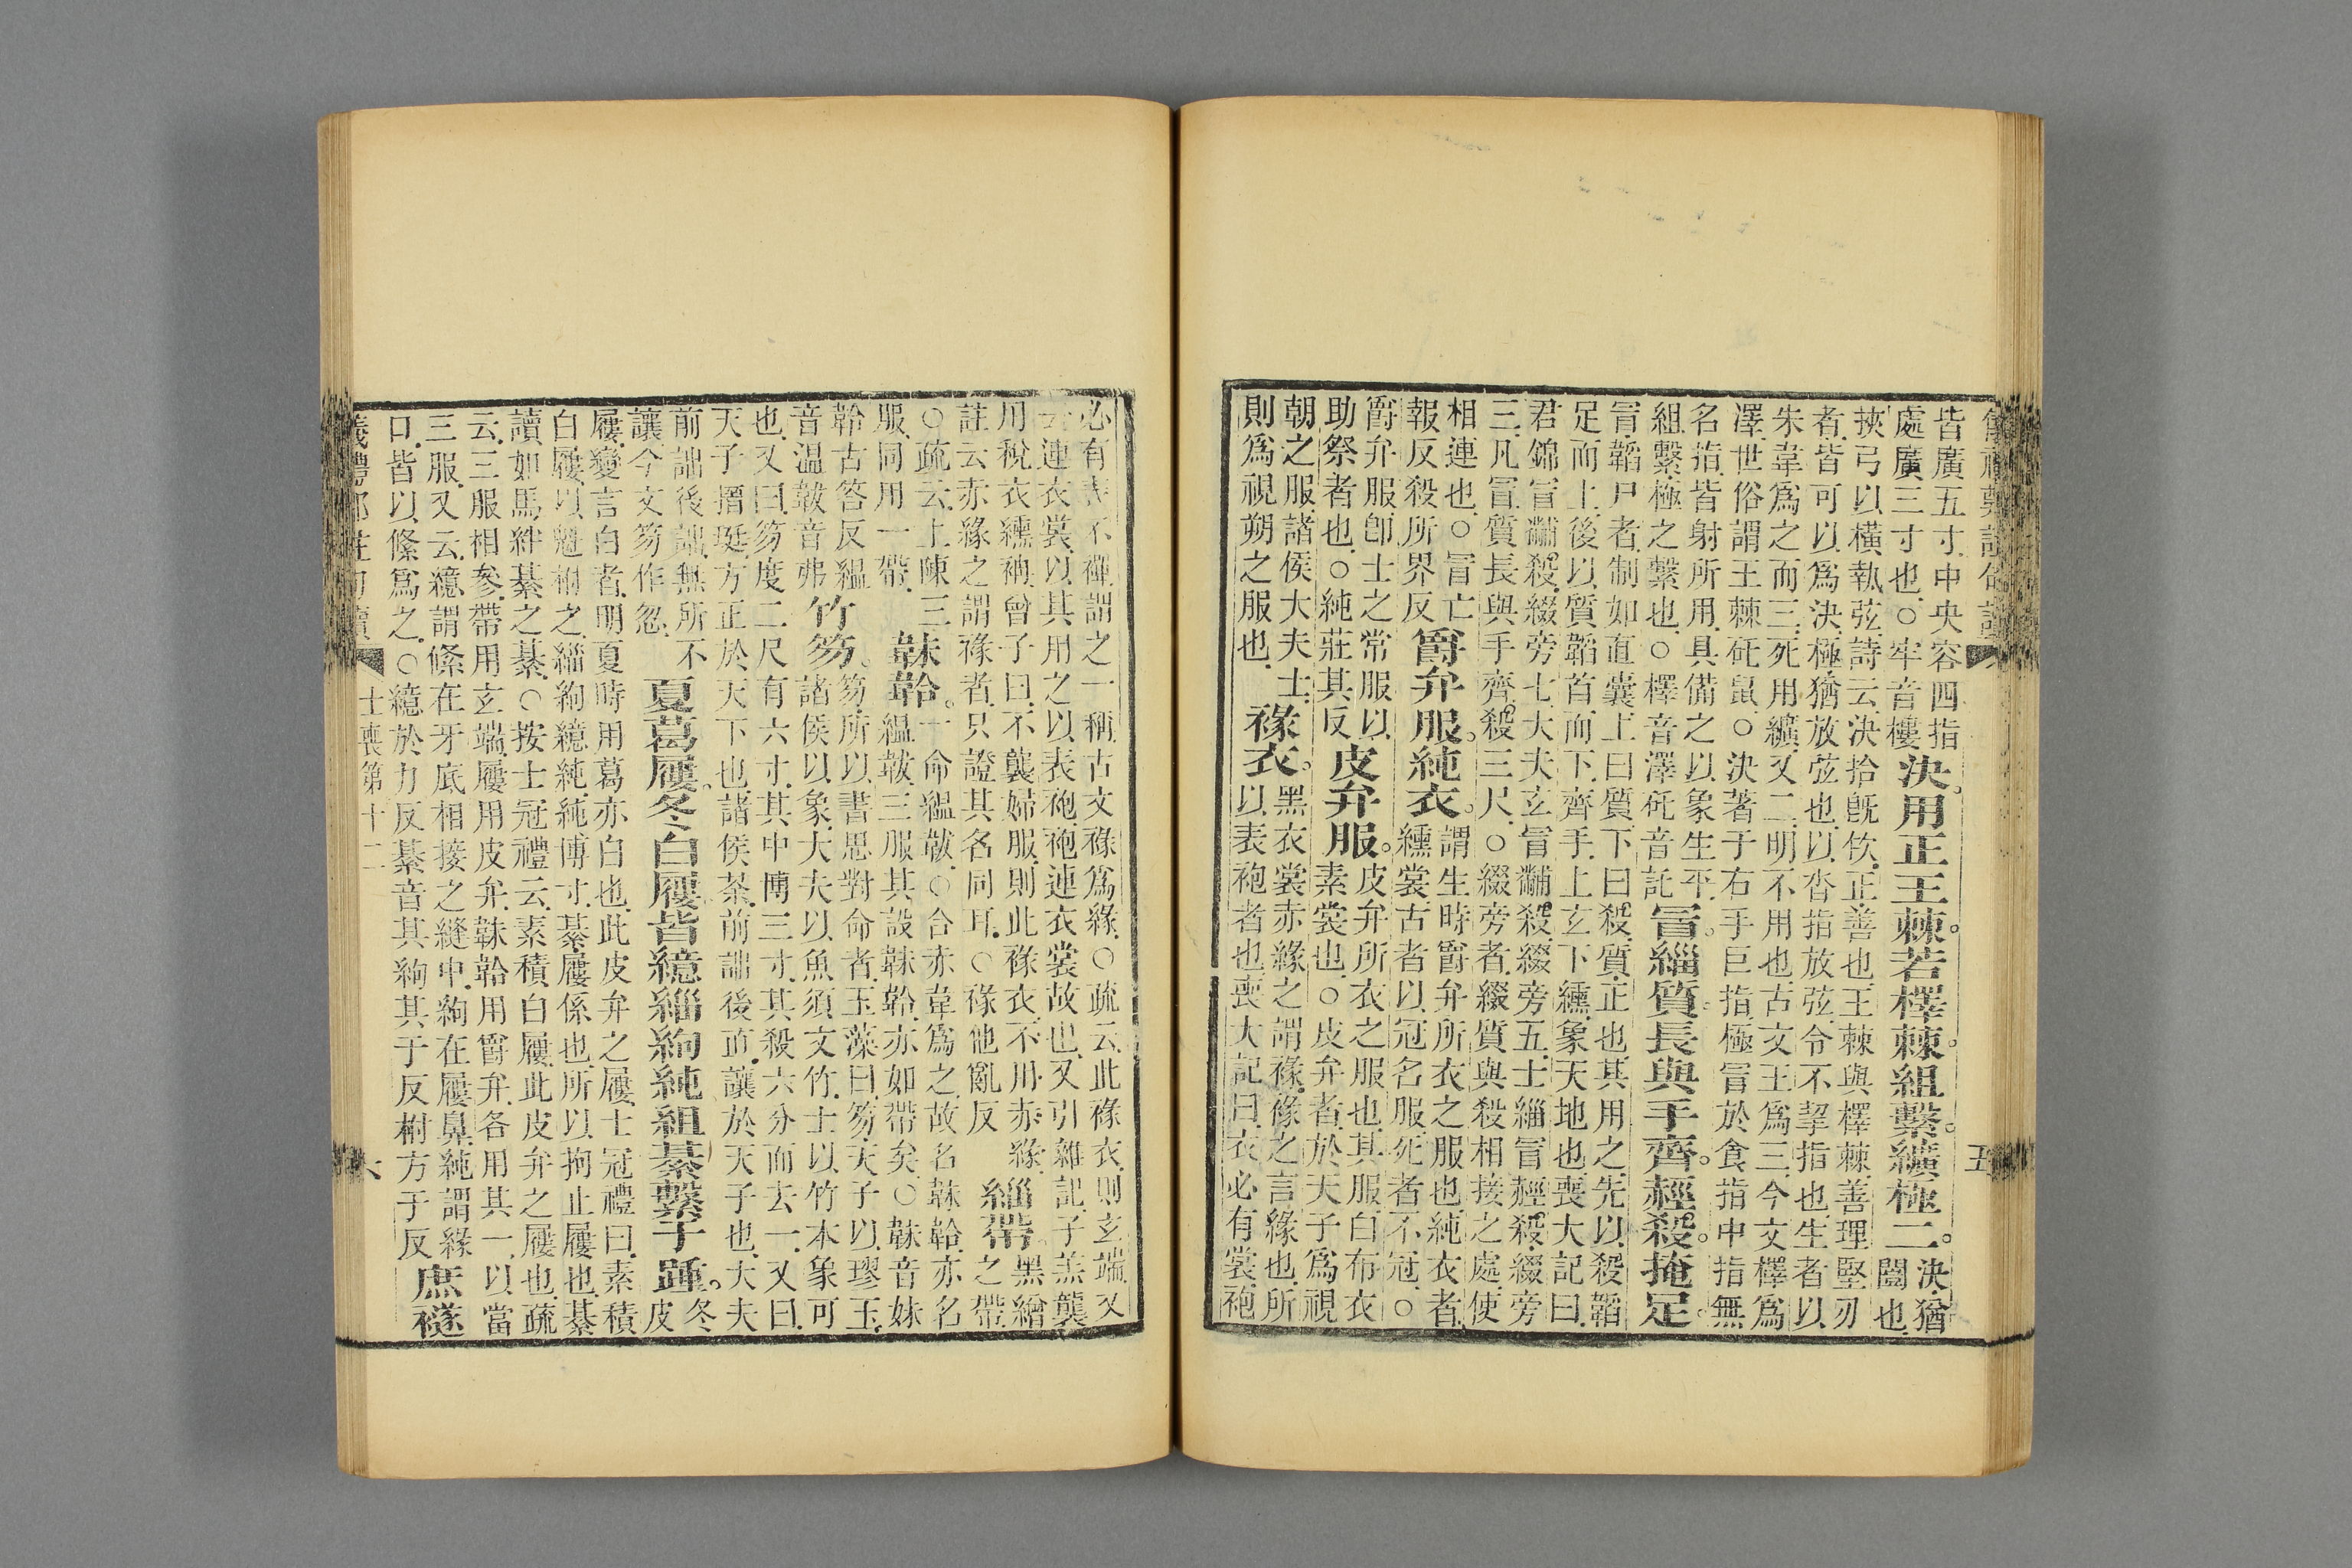 儀禮鄭註句讀 五
皆廣五寸中央容四指
處廣三寸也○牢音樓
決用正王棘若檡棘組繫纊極二
決猶
闓也
挾弓以橫執弦詩云決拾旣佽正善也王棘與檡棘善理堅刃
者皆可以爲決極猶放弦也以沓指放弦令不挈指也生者以
朱韋爲之而三死用纊又二明不用也古文王爲三今文檡爲
澤世俗謂王棘矺鼠○決著于右手巨指極冒於食指中指無
名指皆射所用具備之以象生平
組繫極之繫也○檡音澤矺音託
冒緇質長與手齊䞓殺掩足
冒韜尸者制如直囊上曰質下曰殺質正也其用之先以殺韜
足而上後以質韜首而下齊手上玄下纁象天地也喪大記曰
君錦冒黼殺綴旁七大夫玄冒黼殺綴旁五士緇冒䞓殺綴旁
三凡冒質長與手齊殺三尺○綴旁者綴質與殺相接之處使
相連也○冒亡
報反殺所界反
爵弁服純衣
謂生時爵弁所衣之服也純衣者
纁裳古者以冠名服死者不冠○
爵弁服卽士之常服以
助祭者也○純莊其反
皮弁服
皮弁所衣之服也其服白布衣
素裳也○皮弁者於天子爲視
朝之服諸侯大夫士
則爲視朔之服也
褖衣
黑衣裳赤緣之謂褖褖之言緣也所
以表袍者也喪大記曰衣必有裳袍
必有表不襌謂之一稱古文褖爲緣○疏云此褖衣則玄端又
云連衣裳以其用之以表袍袍連衣裳故也又引雜記子羔襲
用稅衣纁袡曾子曰不襲婦服則此褖衣不用赤緣
註云赤緣之謂褖者只證其名同耳○褖他亂反
緇帶
黑繒
之帶
○疏云上陳三
服同用一帶
韎韐
一命縕韍○合亦韋爲之故名韎韐亦名
縕韍三服其設韎韐亦如帶矣○韎音妹
韐古答反縕
音温韍音弗
竹笏
笏所以書思對命者玉藻曰笏天子以璆玉
諸侯以象大夫以魚須文竹士以竹本象可
也又曰笏度二尺有六寸其中博三寸其殺六分而去一又曰
天子搢珽方正於天下也諸侯荼前詘後直讓於天子也大夫
前詘後詘無所不
讓今文笏作忽
夏葛屨冬白屨皆繶緇絇純組綦繫于踵
冬
皮
屨變言白者明夏時用葛亦白也此皮弁之屨士冠禮曰素積
白屨以魁柎之緇絇繶純純博寸綦屨係也所以拘止屨也綦
讀如馬絆綦之綦○按士冠禮云素積白屨此皮弁之屨也疏
云三服相參帶用玄端屨用皮弁韎韐用爵弁各用其一以當
三服又云繶謂絛在牙底相接之縫中絇在屨鼻純謂緣
口皆以絛爲之○繶於力反綦音其絇其于反柎方于反
庶襚
儀禮鄭註句讀 士喪第十二 六